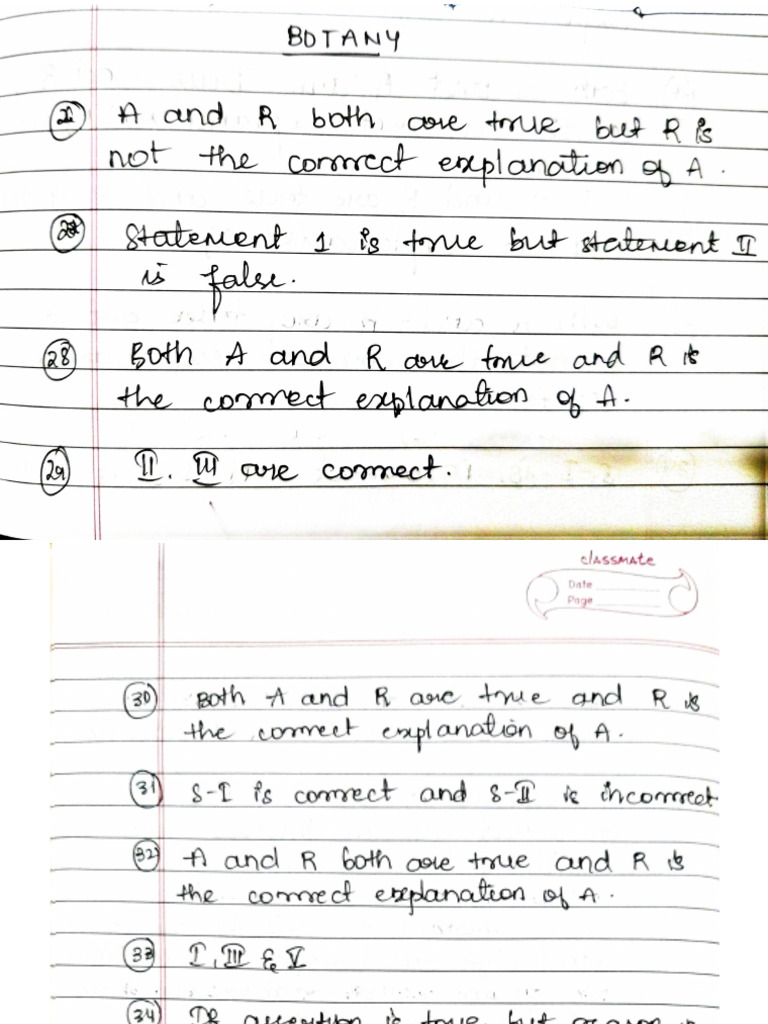 BOTANY
A and R both are true but R is
not the correct explanation of A.
Statement 1 is true but statement II
is false.
28 Both A and R are true and R is
the correct explanation of A.
29 II. III are correct.
classmate
Date
Page
30 Both A and R are true and R is
the correct explanation of A.
31 S-I is correct and S-II is incorrect
32 A and R both are true and R is
the correct explanation of A.
33 I, III & V
34 assertion is true but reason is